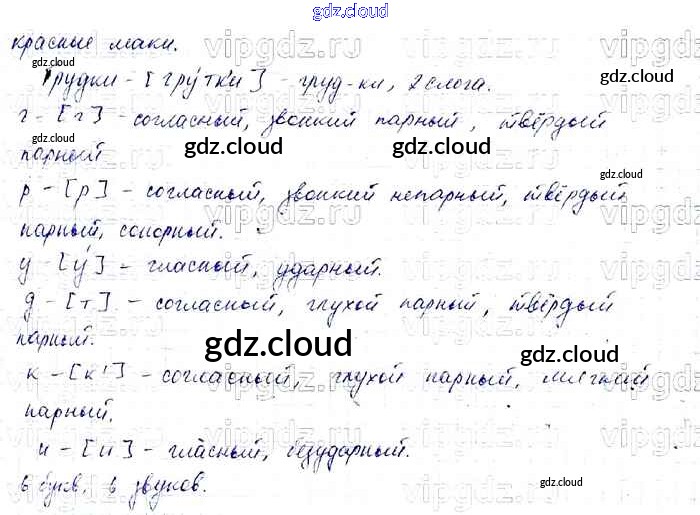 gdz.cloud
красные маки.
gdz.cloud
Грудки - [гру́тк'и] - груд-ки, 2 слога.
gdz.cloud
г - [г] - согласный, звонкий парный, твёрдый
gdz.cloud
парный
gdz.cloud
gdz.cloud
gdz.cloud
р - [р] - согласный, звонкий непарный, твёрдый
парный, сонорный.
у - [у́] - гласный, ударный.
д - [т] - согласный, глухой парный, твёрдый
парный.
gdz.cloud
gdz.cloud
к - [к'] - согласный, глухой парный, мягкий
парный.
и - [и] - гласный, безударный.
6 букв, 6 звуков.
gdz.cloud
gdz.cloud
vipgdz.ru